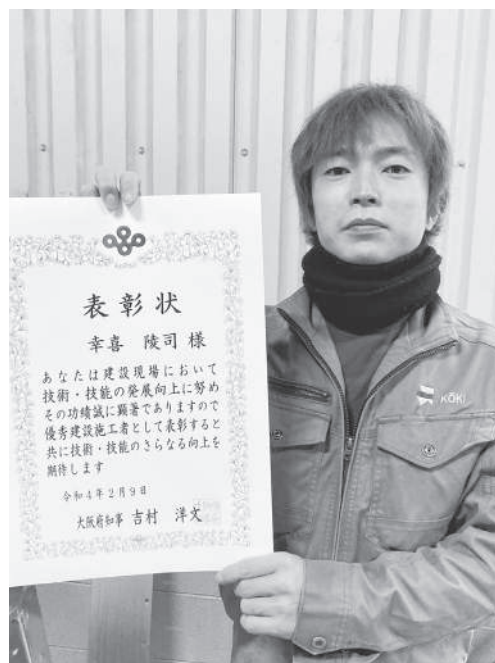 表彰状
幸喜 陵司 様
あなたは建設現場において
技術・技能の発展向上に努め
その功績誠に顕著でありますので
優秀建設施工者として表彰すると
共に技術・技能のさらなる向上を
期待します
令和4年2月9日
大阪府知事 吉村 洋文
KŌKI